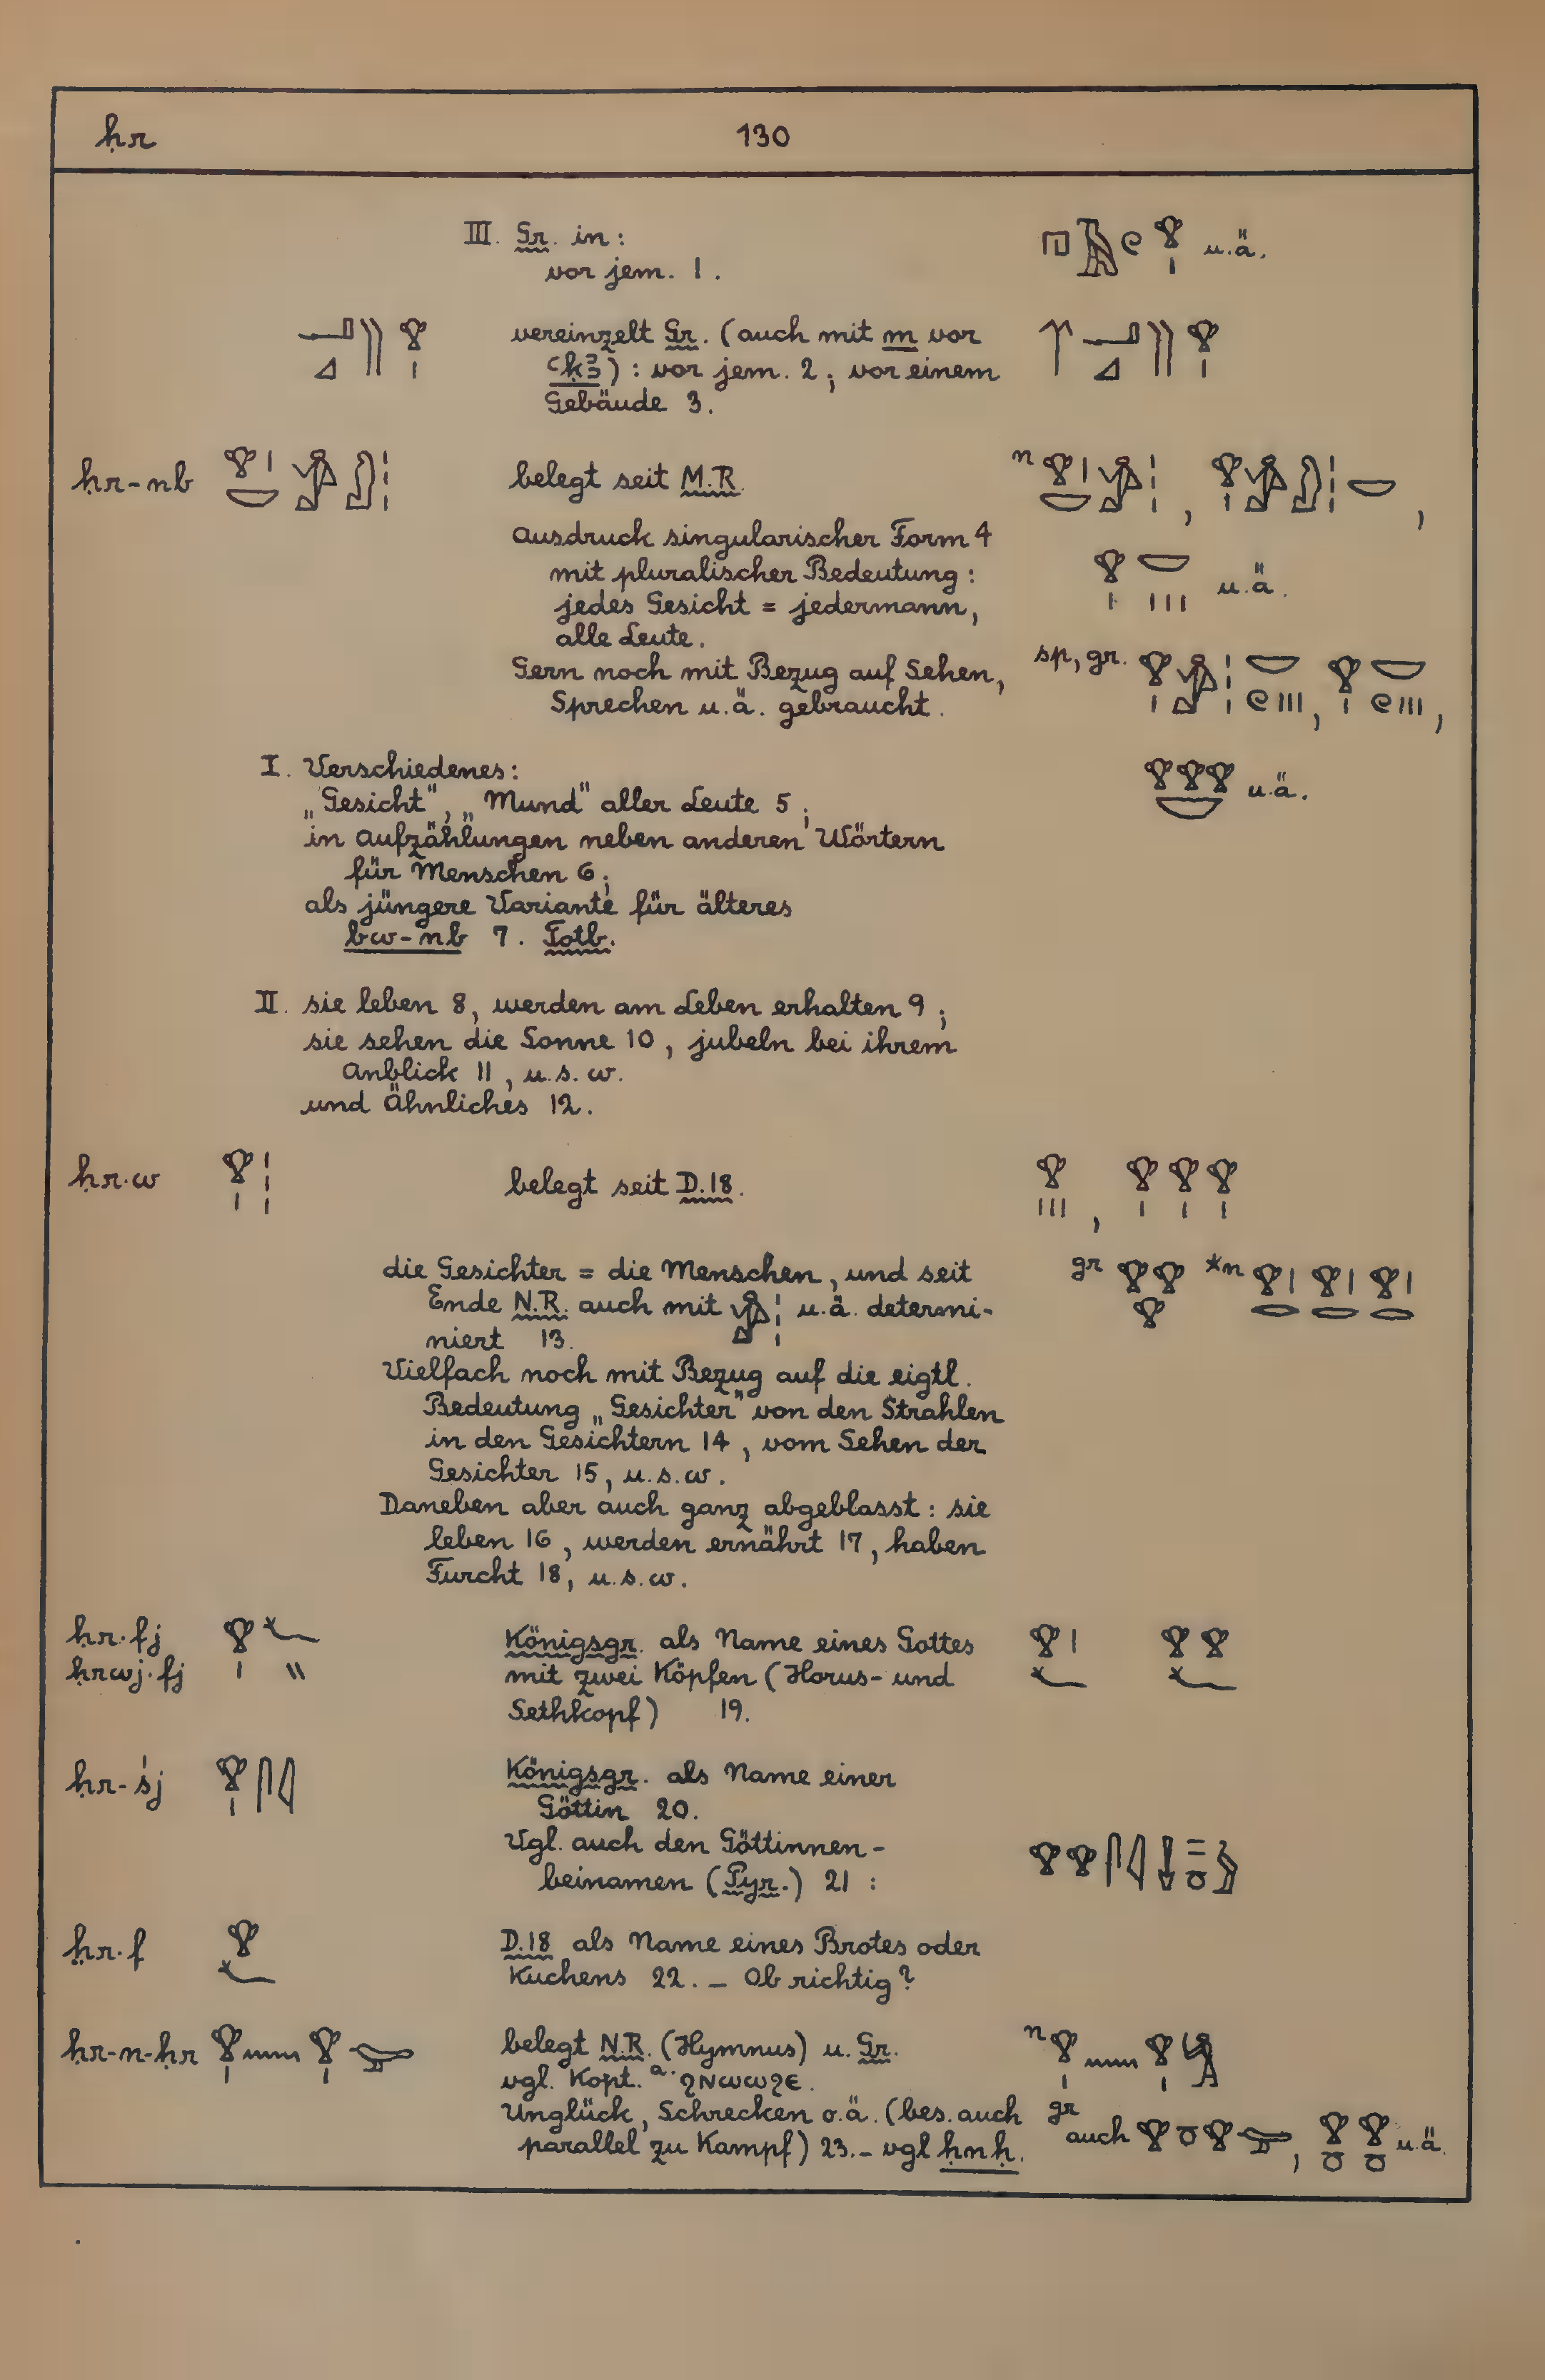 ḥr 130
III. Gr. in: 𓉔𓅱𓏲𓁷𓏤 u.ä.
vor jem. 1.
vereinzelt Gr. (auch mit m vor
ꜥḳꜣ) : vor jem. 2; vor einem
Gebäude 3.
ḥr-nb belegt seit M.R.
Ausdruck singularischer Form 4
mit pluralischer Bedeutung: u.ä.
jedes Gesicht = jedermann,
alle Leute.
Gern noch mit Bezug auf Sehen, sp, gr.
Sprechen u.ä. gebraucht.
I. Verschiedenes:
„Gesicht", „Mund" aller Leute 5; u.ä.
in Aufzählungen neben anderen Wörtern
für Menschen 6;
als jüngere Variante für älteres
bw-nb 7. Totb.
II. sie leben 8, werden am Leben erhalten 9;
sie sehen die Sonne 10, jubeln bei ihrem
Anblick 11, u.s.w.
und Ähnliches 12.
ḥr·w 𓁷𓏤𓏪 belegt seit D.18. 𓁷𓏪, 𓁷𓏤𓁷𓏤𓁷𓏤
die Gesichter = die Menschen, und seit gr 𓁷𓁷𓁷 *n 𓁷𓂋𓏤𓁷𓂋𓏤𓁷𓂋𓏤
Ende N.R. auch mit 𓀀𓏪 u.ä. determi-
niert 13.
Vielfach noch mit Bezug auf die eigtl.
Bedeutung „Gesichter" von den Strahlen
in den Gesichtern 14, vom Sehen der
Gesichter 15, u.s.w.
Daneben aber auch ganz abgeblasst: sie
leben 16, werden ernährt 17, haben
Furcht 18, u.s.w.
ḥr·fj 𓁷𓏤𓆑𓏭 Königsgr. als Name eines Gottes 𓁷𓏤𓆑 𓁷𓁷𓆑
ḥrwj·fj mit zwei Köpfen (Horus- und
Sethkopf) 19.
ḥr-śj 𓁷𓏤𓋴𓇋 Königsgr. als Name einer
Göttin 20.
Vgl. auch den Göttinnen-
beinamen (Pyr.) 21 :
ḥr·f 𓁷𓆑 D.18 als Name eines Brotes oder
Kuchens 22. – Ob richtig?
ḥr-n-ḥr 𓁷𓏤𓈖𓁷𓏤𓅪 belegt N.R. (Hymnus) u. Gr. n 𓁷𓏤𓈖𓁷𓏤𓀜
vgl. Kopt. a. ϩⲛⲱⲱϩⲉ.
Unglück, Schrecken o.ä. (bes. auch gr
parallel zu Kampf) 23. – vgl ḥnḥ. auch 𓁷𓏌𓁷𓅪, 𓁷𓏌𓁷𓏌 u.ä.